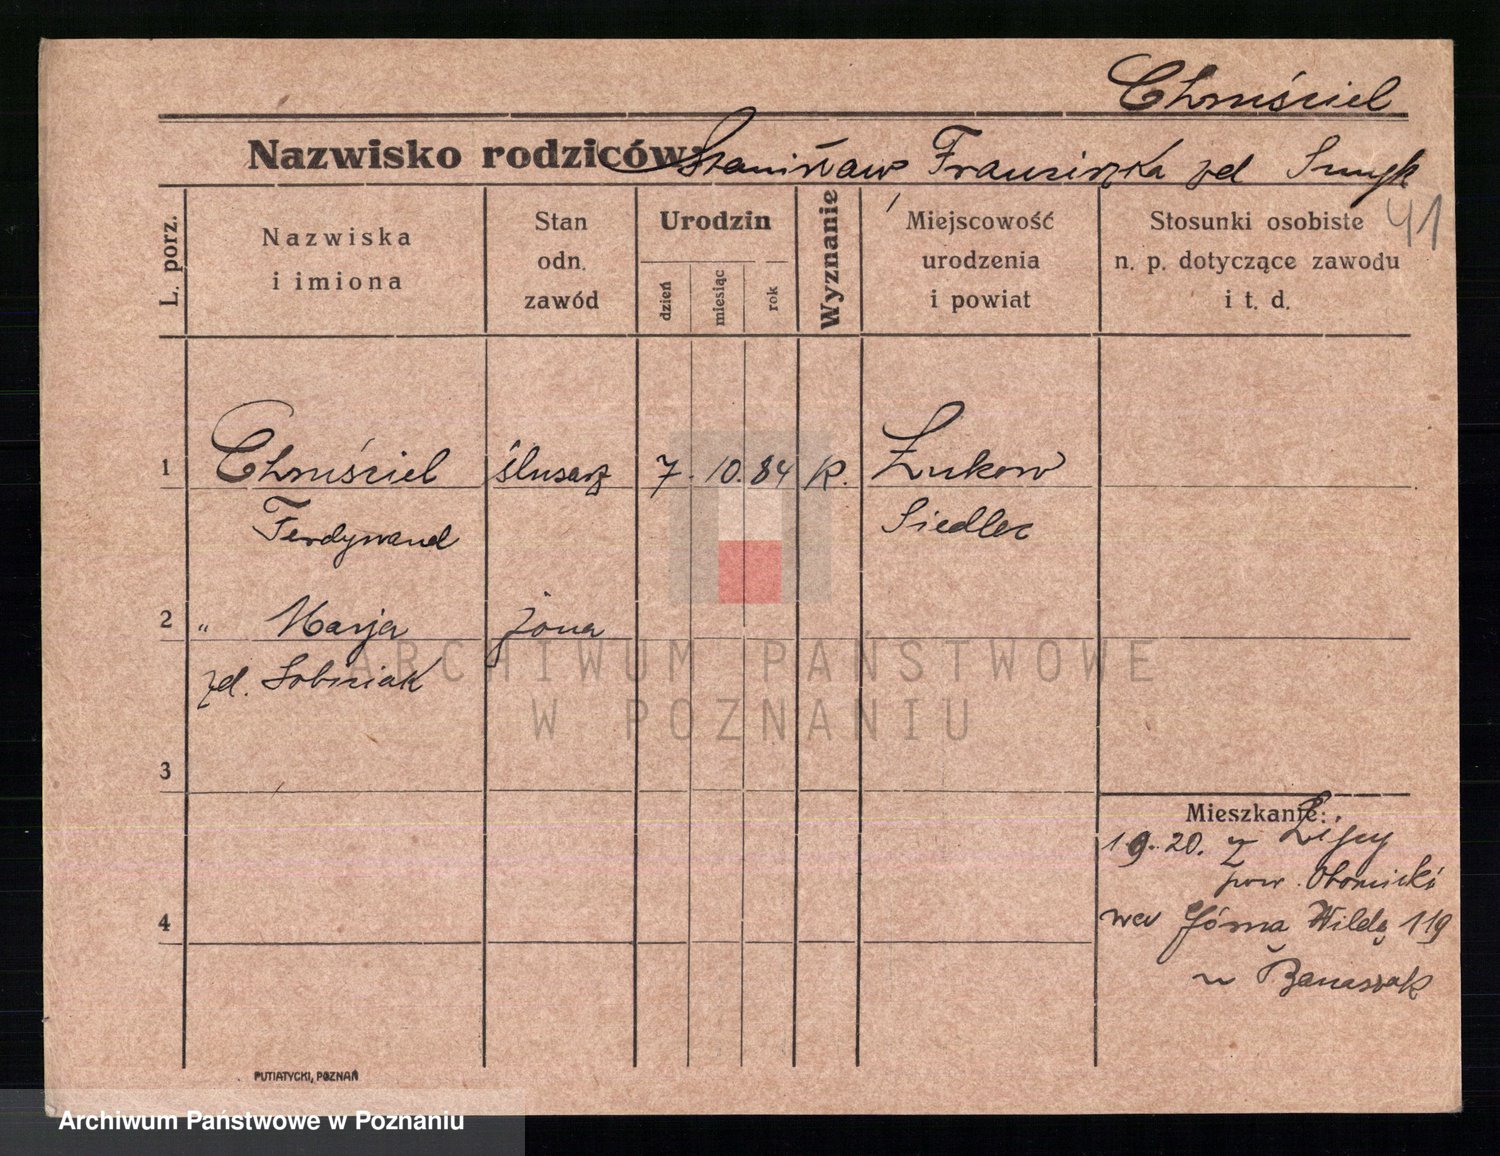 Chruściel
Nazwisko rodziców: Stanisław Franciszka zd Smyk
41
L. porz.
Nazwiska
i imiona
Stan
odn.
zawód
Urodzin
dzień
miesiąc
rok
Wyznanie
Miejscowość
urodzenia
i powiat
Stosunki osobiste
n. p. dotyczące zawodu
i t. d.
1 Chruściel ślusarz 7. 10. 84 K. Łukow
Ferdynand Siedlec
2 " Marja żona
zd. Sobisiak
3
Mieszkanie:
19.20. z
pow. Obornicki
4
Górna Wilda 119
u Banaszak
PUTIATYCKI, POZNAŃ
ARCHIWUM PAŃSTWOWE
W POZNANIU
Archiwum Państwowe w Poznaniu